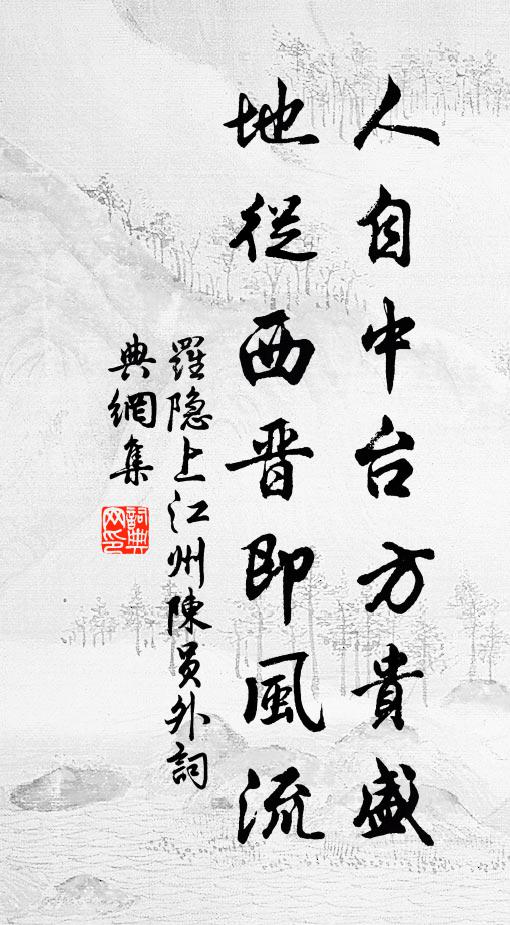 人自中台方貴盛
地從西晋即風流
羅隐上江州陳員外詞
典網集
詞典网印